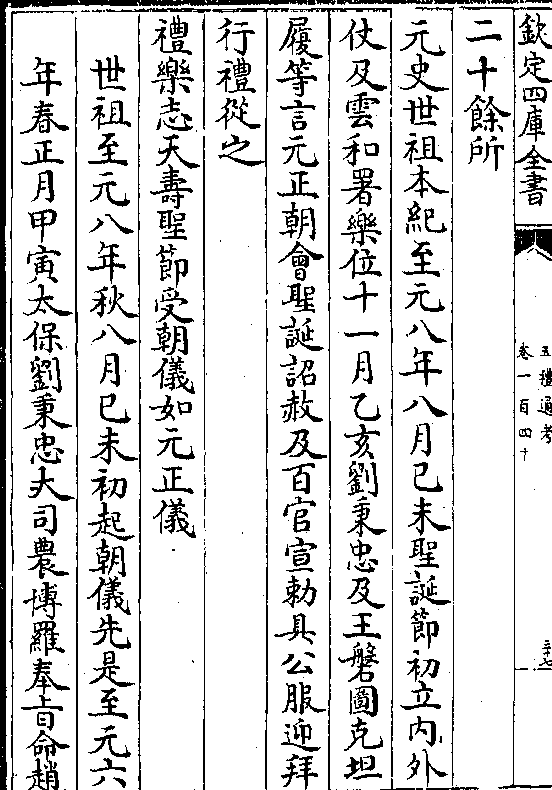 欽定四庫全書
五禮通考
卷一百四十
二十餘所
元史世祖本紀至元八年八月己未聖誕節初立內外
仗及雲和署樂位十一月乙亥劉秉忠及王磐圖克坦
履等言元正朝會聖誕詔赦及百官宣勅具公服迎拜
行禮從之
禮樂志天壽聖節受朝儀如元正儀
世祖至元八年秋八月已未初起朝儀先是至元六
年春正月甲寅太保劉秉忠大司農博羅奉旨命趙